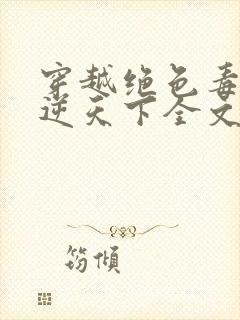 穿越绝色毒
逆天下全文
筠倾